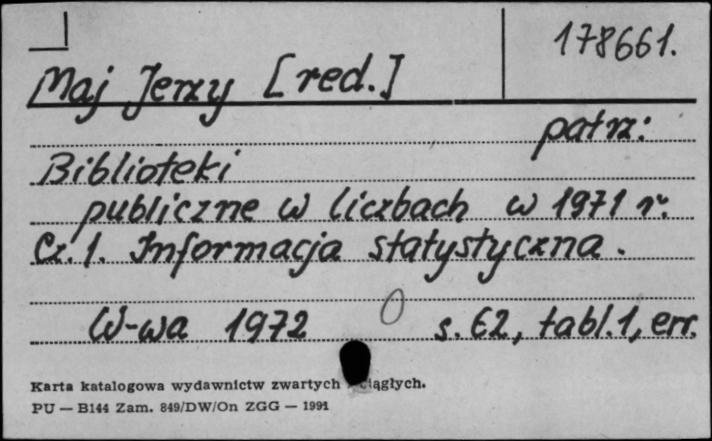 178661.
Maj Jerzy [red.]
patrz:
Biblioteki
publiczne w liczbach w 1971 r.
Cz. 1. Informacja statystyczna.
W-wa 1972 s. 62, tabl. 1, err.
Karta katalogowa wydawnictw zwartych ciągłych.
PU — B144 Zam. 849/DW/On ZGG — 1991